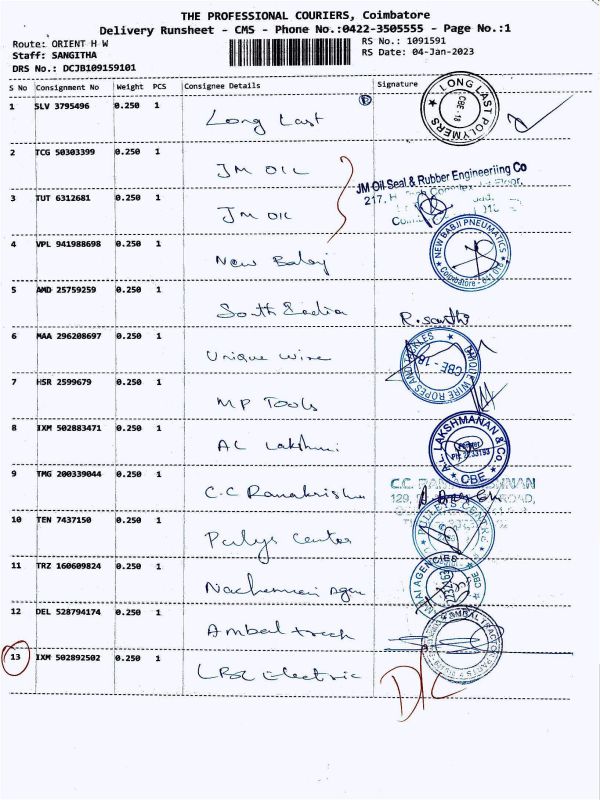 THE PROFESSIONAL COURIERS, Coimbatore
Delivery Runsheet - CMS - Phone No.:0422-3505555 - Page No.:1
Route: ORIENT H W
RS No.: 1091591
Staff: SANGITHA
RS Date: 04-Jan-2023
DRS No.: DCJB109159101
S No Consignment No Weight PCS Consignee Details Signature
1 SLV 3795496 0.250 1 Long Last
LONG LAST POLYMERS ★ CBE - 18 ★
2 TCG 50303399 0.250 1 JM OIL
JM Oil Seal & Rubber Engineeriing Co
217,
3 TUT 6312681 0.250 1 JM OIL
4 VPL 941988698 0.250 1 New Balaj
NEW BABJI PNEUMATICS ★ Coimbatore - 641 018 ★
5 AMD 25759259 0.250 1 South India
R. Santhi
6 MAA 296208697 0.250 1 Unique wire
UNIQUE WIRE ROPES AND TACKLES CBE - 18
7 HSR 2599679 0.250 1 MP Tools
8 IXM 502883471 0.250 1 AL Lakshmi
AL. LAKSHMANAN & Co. ★ CBE ★
9 TMG 200339044 0.250 1 C.C Ramakrishn
C.C.
129, ROAD,
10 TEN 7437150 0.250 1 Pulys Center
PULLEYS CENTRE
11 TRZ 160609824 0.250 1 Nachemmai agen
AGENCIES CBE
12 DEL 528794174 0.250 1 Ambal track
AMBAL TRACTOR PARTS
13 IXM 502892502 0.250 1 LBC Electric
D/C